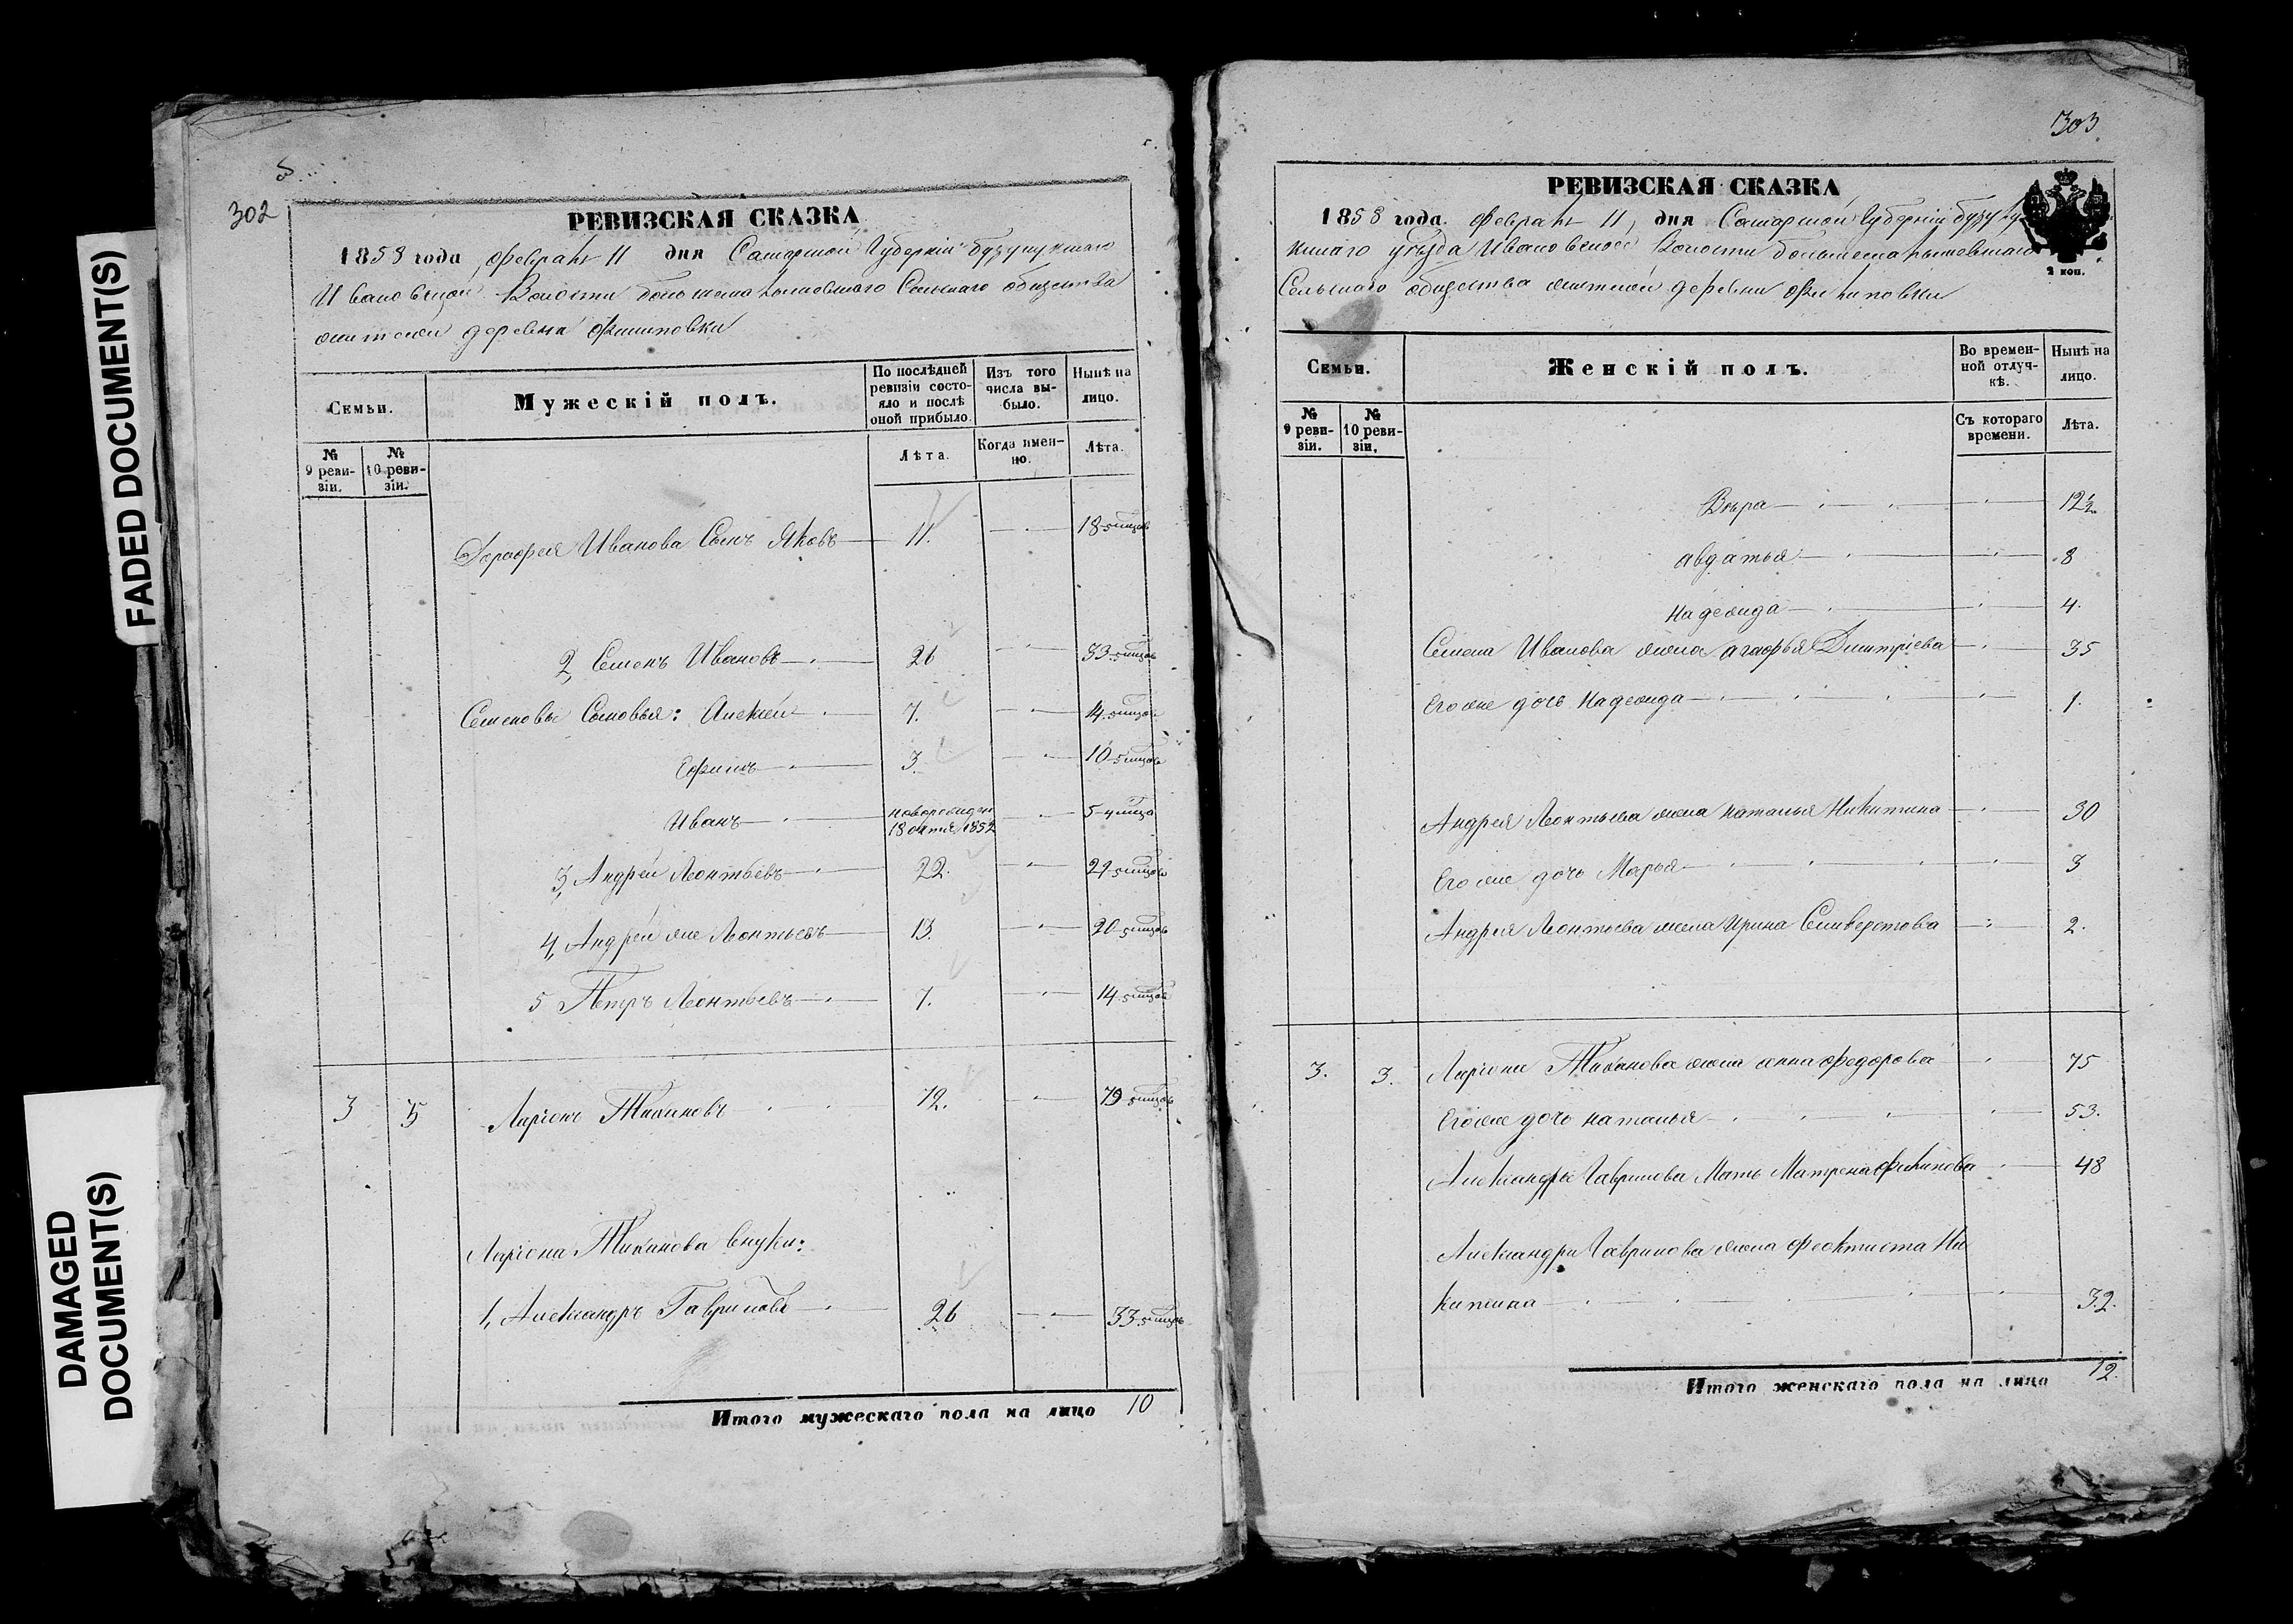 FADED DOCUMENT(S)
DAMAGED
DOCUMENT(S)
302
РЕВИЗСКАЯ СКАЗКА
1858 года Февраля 11 дня Самарской Губернии Бузулукскаго
Ивановской Волости Сельскаго общества
деревни Филиповки
Семьи.
Мужескій полъ.
По послѣдней ревизіи состояло и послѣ оной прибыло.
Изъ того числа выбыло.
Нынѣ на лицо.
№ 9 ревизіи.
№ 10 ревизіи.
Лѣта.
Когда именно.
Лѣта.
Дорофея Иванова Сынъ Яковъ 11. 18
2, Семенъ Ивановъ 26 33
Семеновы Сыновья: Алексей 7. 14
Ефимъ 3. 10
Иванъ новорожден 18 1852 5
3, Андрей Леонтьевъ 22. 29
4, Андрей же Леонтьевъ 13. 20
5 Петръ Леонтьевъ 7. 14
3 Ларіонъ 72. 79
Ларіона внуки:
1, Александръ Гавриловъ 26 33
Итого мужескаго пола на лицо 10
303
РЕВИЗСКАЯ СКАЗКА
1858 года. Февраля 11, дня Самарской Губерніи Бузулу
кскаго уѣзда Ивановской Волости
Сельскаго общества деревни Филиповки
2 коп.
Семьи.
Женскій полъ.
Во временной отлучкѣ.
Нынѣ на лицо.
№ 9 ревизіи.
№ 10 ревизіи.
Съ котораго времени.
Лѣта.
Вѣра 12½
Авдатья 8
Надежда 4.
Семена Иванова жена Агафья Дмитріева 35
Его же дочь Надежда 1.
Андрея Леонтьева жена Наталья Никитина 30
Его же дочь Марья 3
Андрея Леонтьева жена Ирина Селиверстова 2.
3. 3. Ларіона жена Анна Федорова 75
Его же дочь Наталья 53.
Александра Гаврилова Мать Матрена Филипова 48
Александра Гаврилова жена Феоктиста Ни
китина 32.
Итого женскаго пола на лицо 12.